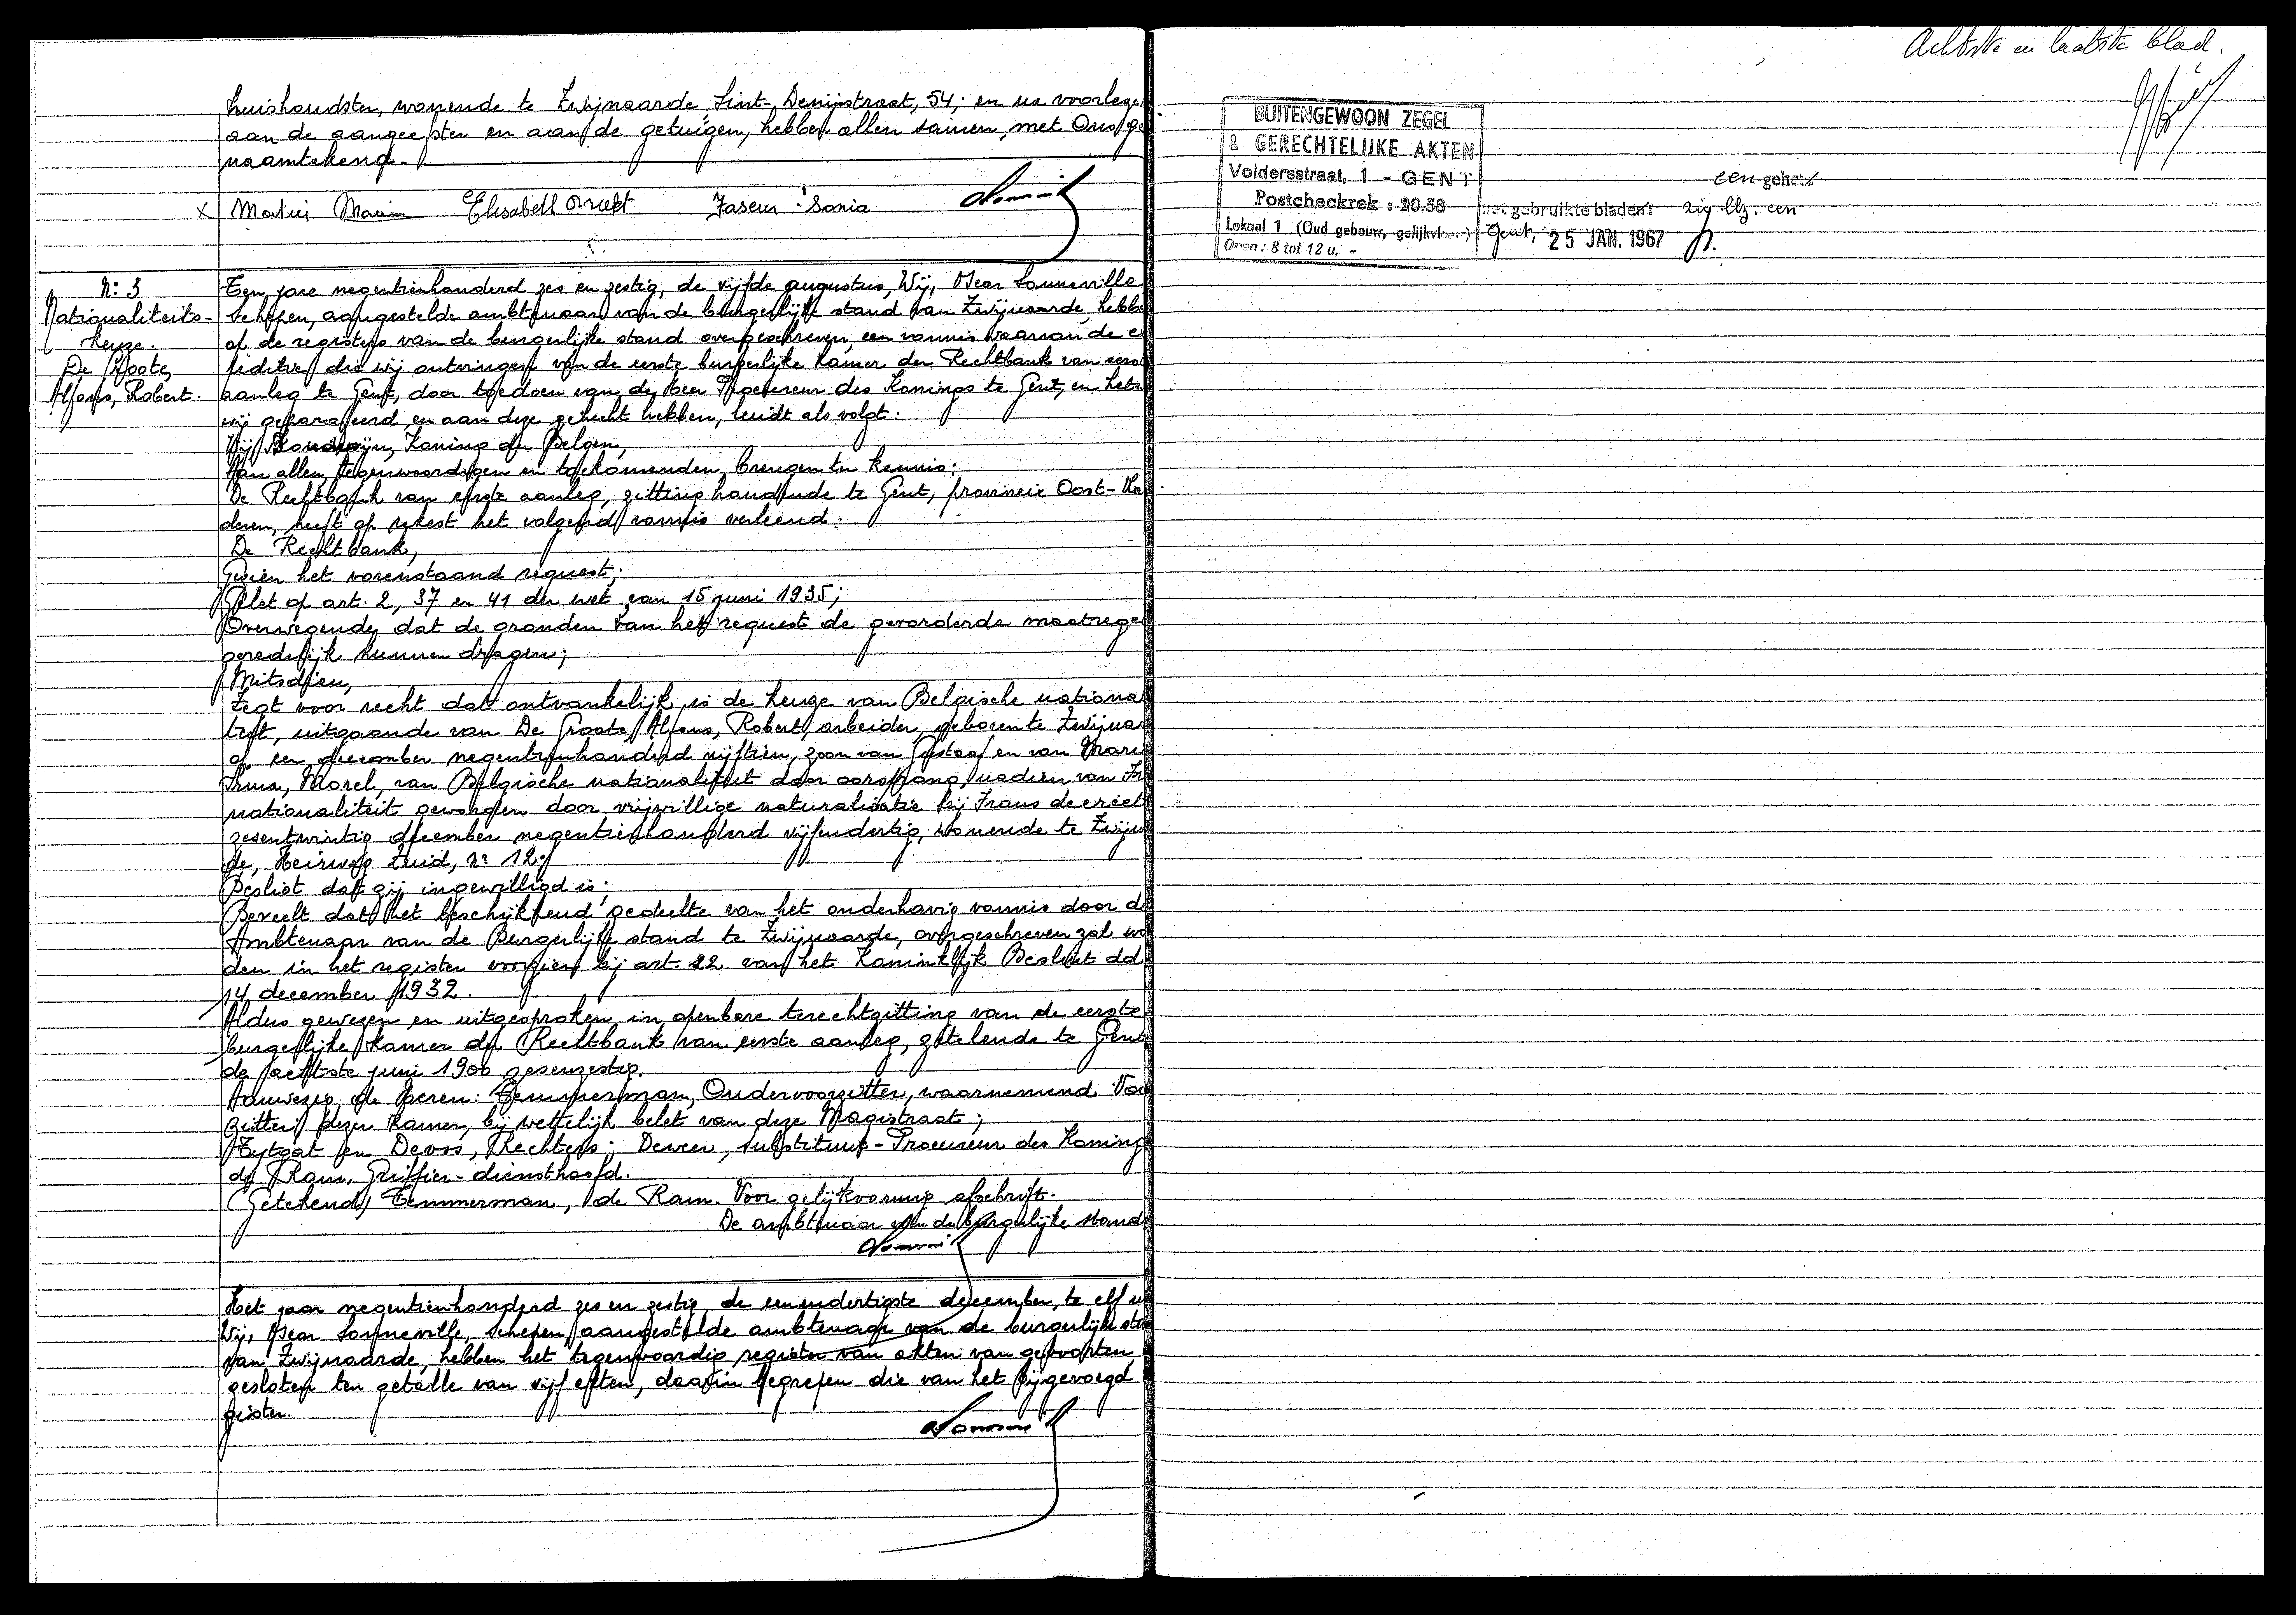 huishoudster, wonende te Zwijnaarde Sint-Denijsstraat, 54; en na voorlege
aan de aangeefster en aan de getuigen, hebben allen samen met Ons ge
naamtekend.
X
Elisabeth
Sonia
N: 3
Nationaliteits-
keuze.
De Groote,
Alfons, Robert.
Ten jare negentienhonderd zes en zestig, de vijfde augustus, Wij, Oscar Sonneville
Schepen, aangestelde ambtenaar van de burgerlijke stand van Zwijnaarde, hebbe
op de registers van de burgerlijke stand overgeschreven, een vonnis waarvan de e
peditie, die wij ontvingen van de eerste burgerlijke Kamer der Rechtbank van eers
aanleg te Gent, door toedoen van de heer Procureur des Konings te Gent, en het
wij geparafeerd en aan deze gehecht hebben, luidt als volgt:
Wij Boudewijn, Koning der Belgen,
Aan allen, tegenwoordigen en toekomenden, brengen ter kennis:
De Rechtbank van eerste aanleg, zitting houdende te Gent, provincie Oost-Vla
deren, heeft op rekest het volgend vonnis verleend:
De Rechtbank,
Gezien het vorenstaand request;
Gelet op art. 2, 37 en 41 der wet van 15 juni 1935;
Overwegende dat de gronden van het request de gevorderde maatregel
geredelijk kunnen dragen;
Mitsdien,
Zegt voor recht dat ontvankelijk is de keuze van Belgische nationa
teit, uitgaande van De Groote, Alfons, Robert, arbeider, geboren te Zwijnaa
op een december negentienhonderd vijftien, zoon van Gustaaf en van Mari
Irma, Morel, van Belgische nationaliteit door oorsprong, nadien van Fr
nationaliteit geworden door vrijwillige naturalisatie bij Frans decreet
zesentwintig december negentienhonderd vijfendertig, wonende te Zwijn
de, Heirweg Zuid, nr 12;
Beslist dat zij ingewilligd is;
Beveelt dat het beschikkend gedeelte van het onderhavig vonnis door de
Ambtenaar van de Burgerlijke stand te Zwijnaarde, overgeschreven zal wo
den in het register voorzien bij art. 22 van het Koninklijk Besluit dd
14 december 1932.
Aldus gewezen en uitgesproken in openbare terechtzitting van de eerste
burgerlijke Kamer der Rechtbank van eerste aanleg, zetelende te Gent
de achtste juni 1900 zesenzestig.
Aanwezig de Heren: Temmerman, Ondervoorzitter, waarnemend Voo
zitter dezer kamer, bij wettelijk belet van deze Magistraat;
Tytgat en Devos, Rechters; Deweer, substituut-Procureur des Konings
de Ram, Griffier-diensthoofd.
(Getekend) Temmerman, de Ram. Voor gelijkvormig afschrift.
De ambtenaar van de burgerlijke stand
Het jaar negentienhonderd zes en zestig, de eenendertigste december, te elf u
Wij, Oscar Sonneville, schepen, aangestelde ambtenaar van de burgerlijke sta
van Zwijnaarde, hebben het tegenwoordig register van akten van geboorten
gesloten ten getalle van vijf akten, daarin begrepen die van het bijgevoegd
gister.
Achtste en laatste blad.
BUITENGEWOON ZEGEL
& GERECHTELIJKE AKTEN
Voldersstraat, 1 - GENT
Postcheckrek : 20.58
Lokaal 1 (Oud gebouw, gelijkvloer)
Open : 8 tot 12 u. -
een
gebruikte bladen: blz. een
Gent, 25 JAN. 1967